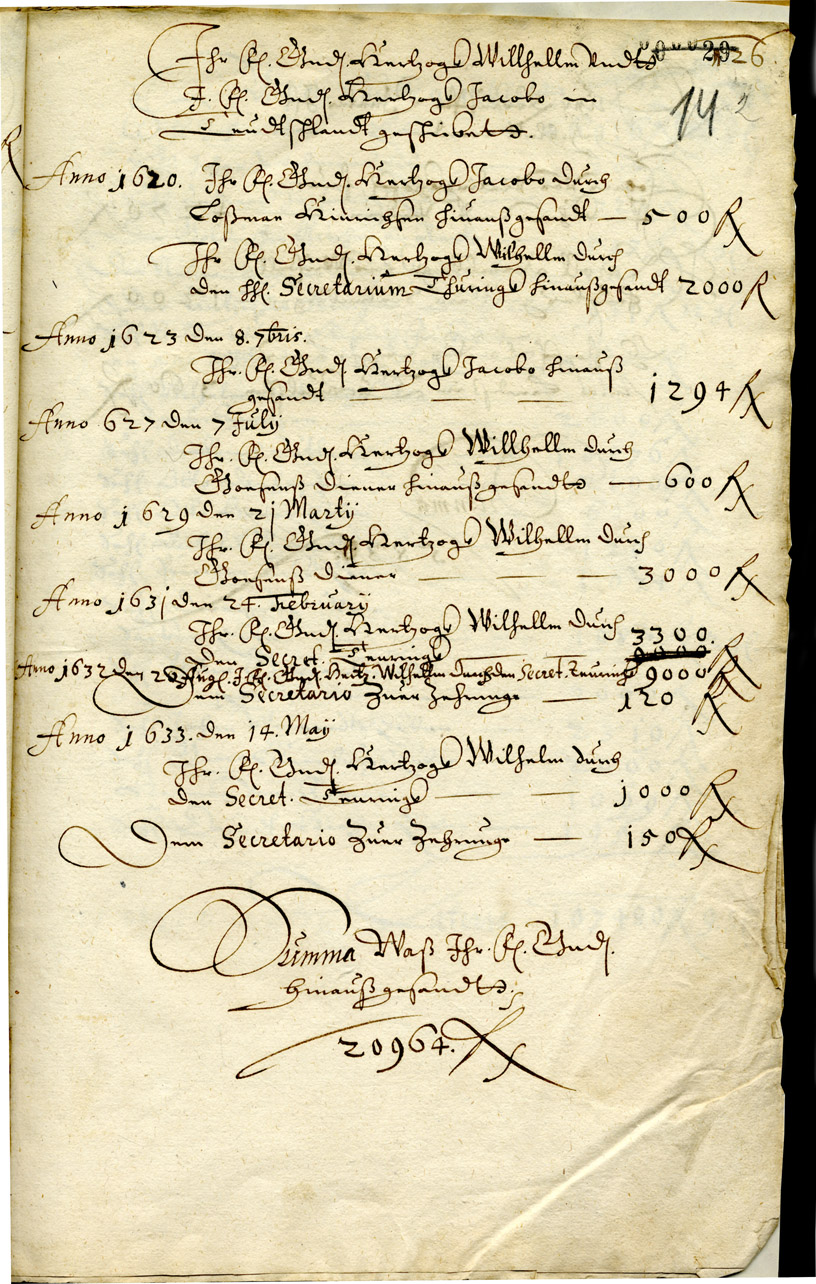 29 26
Ihr F. Gnd. Hertzogs Willhellm Undt
14 2
I. F. Gnd. Hertzogs Jacobo in
Teudtschlandt geschicket.
Anno 1620. Ihr F. Gnd. Hertzogs Jacobo durch
Hinrichsen hinauß gesandt — 500 Rx
Ihr F. Gnd. Hertzogs Wilhellm durch
den Secretarium Thurings hinauß gesandt 2000 R
Anno 1623 den 8. 7bris.
Ihr. F. Gnd. Hertzogs Jacobo hinauß
gesandt — — — 1294 Rx
Anno 627 den 7 July
Ihr. F. Gnd. Hertzogs Willhellm durch
Diener hinauß gesandt — 600 Rx
Anno 1629 den 21 Marty
Ihr. F. Gnd. Hertzogs Wilhellm durch
Diener — — — 3000 Rx
Anno 1631 den 24. February
Ihr. F. Gnd. Hertzogs Wilhellm durch 3300.
den Secret. Teurings
Anno 1632 den 20 Aug. I. F. Gnd. Hertz. Wilhellm durch den Secret. Teurings 9000 Rx
Dem Secretario Zuer Zehrunge — 120 Rx
Anno 1633. den 14. May
Ihr. F. Gnd. Hertzogs Wilhelm durch
den Secret. Teurings — — 1000 Rx
Dem Secretario Zuer Zehrunge — 150 Rx
Summa Waß Ihr. F. Gnd.
hinauß gesandt.
20964. Rx